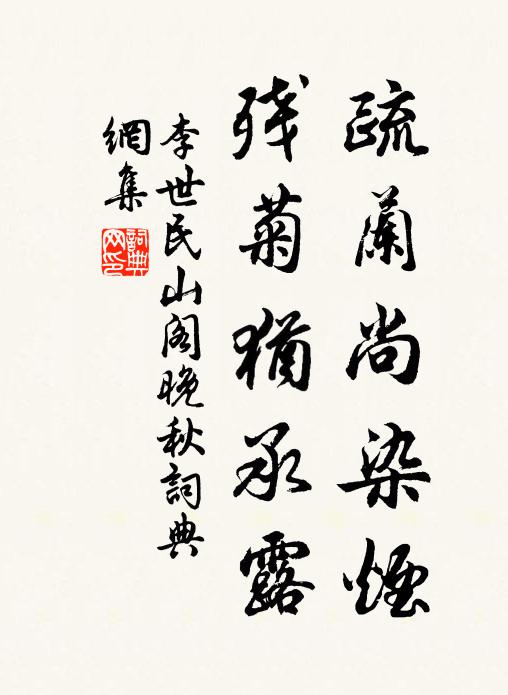 疏蘭尚染煙
残菊猶承露
李世民山閣晚秋詞典
網集
詞典
网印